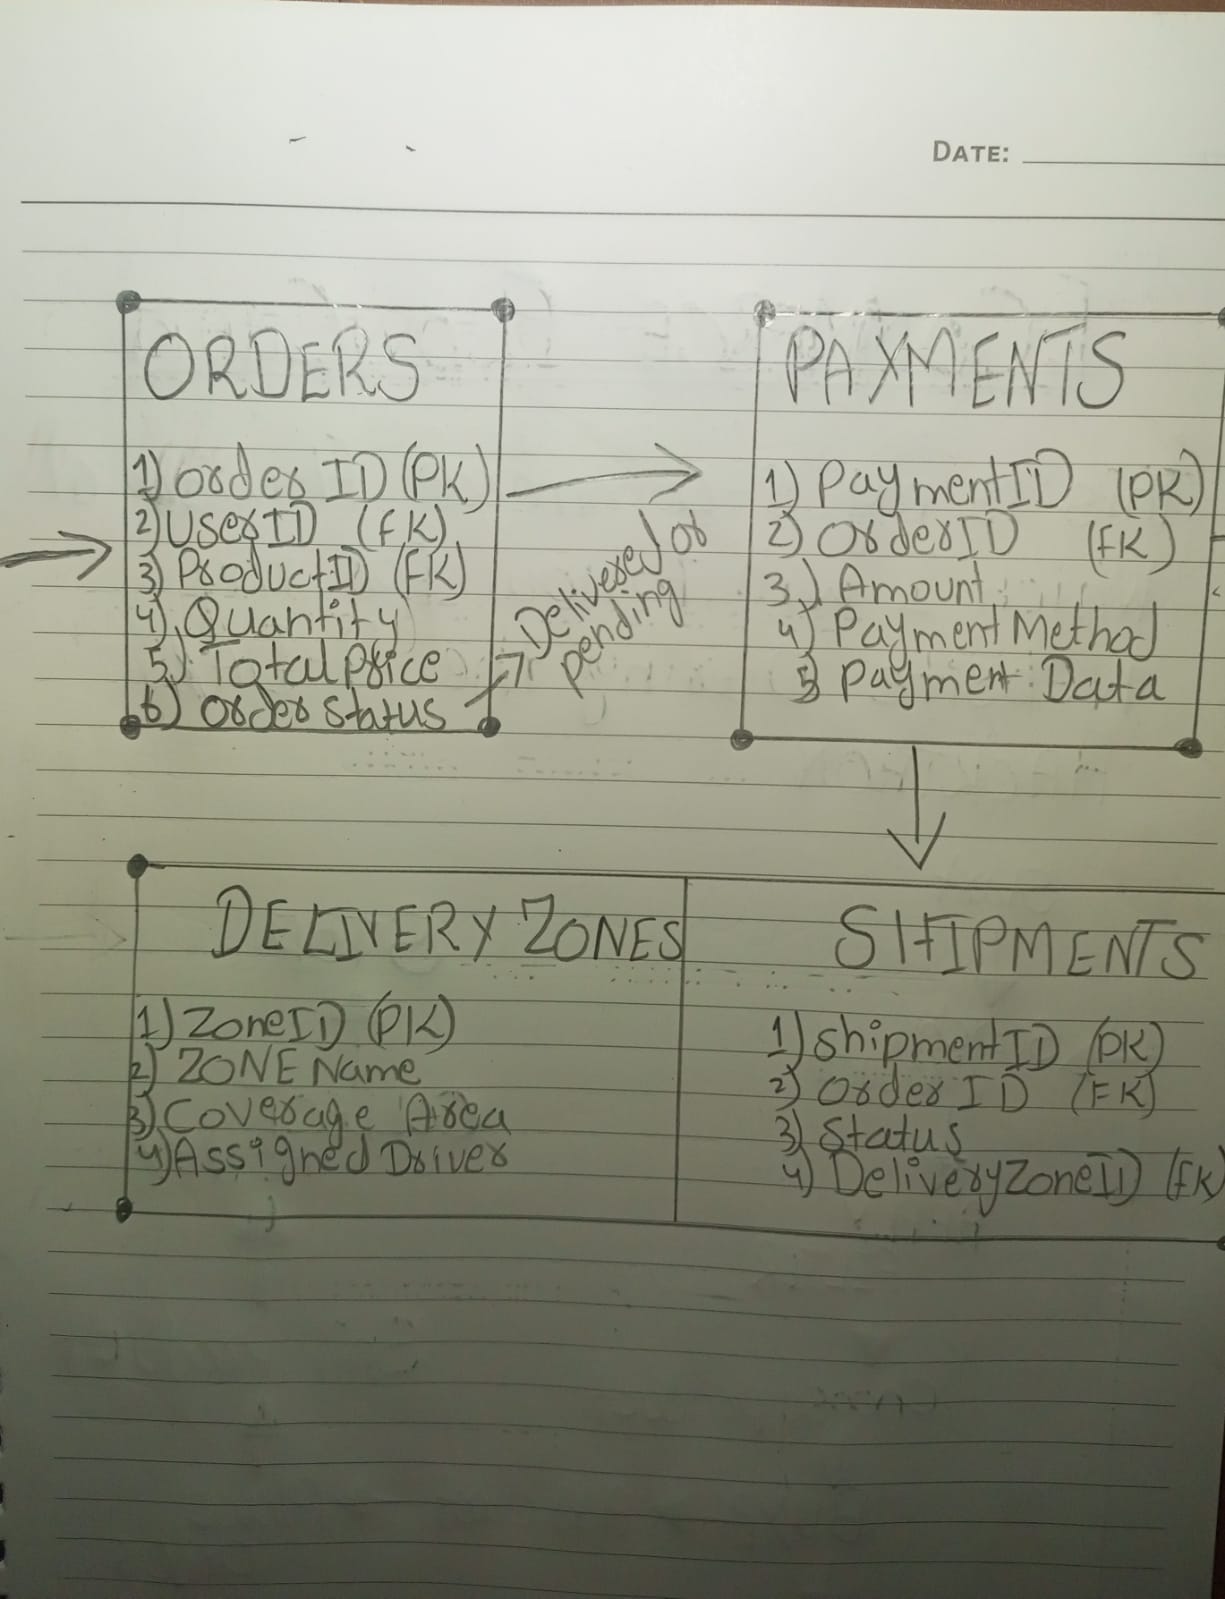 DATE:
ORDERS
1) Order ID (PK)
2) UserID (FK)
3) ProductID (FK)
4) Quantity
5) TotalPrice
6) Order Status
Delivered or
pending
PAYMENTS
1) PaymentID (PK)
2) OrderID (FK)
3) Amount
4) Payment Method
5) Payment Data
DELIVERY ZONES
1) ZoneID (PK)
2) ZONE Name
3) Coverage Area
4) Assigned Driver
SHIPMENTS
1) ShipmentID (PK)
2) Order ID (FK)
3) Status
4) DeliveryZoneID (FK)